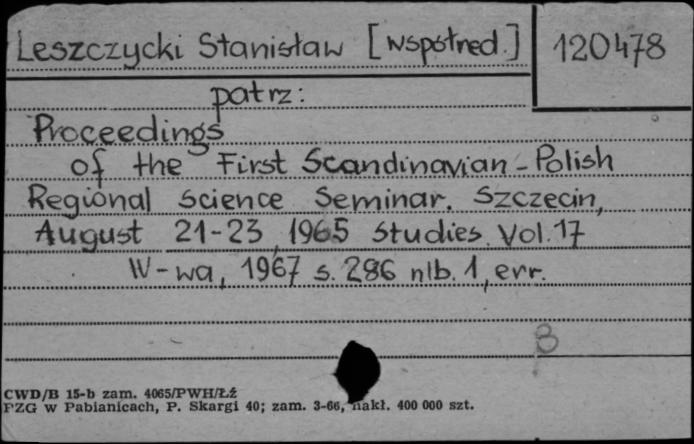 Leszczycki Stanisław [współred.]
120478
patrz:
Proceedings
of the First Scandinavian-Polish
Regional Science Seminar. Szczecin,
August 21-23, 1965 Studies. Vol. 17
W-wa, 1967 s. 286 nlb. 1, err.
B
CWD/B 15-b zam. 4065/PWH/Łź
PZG w Pabianicach, P. Skargi 40; zam. 3-66, nakł. 400 000 szt.